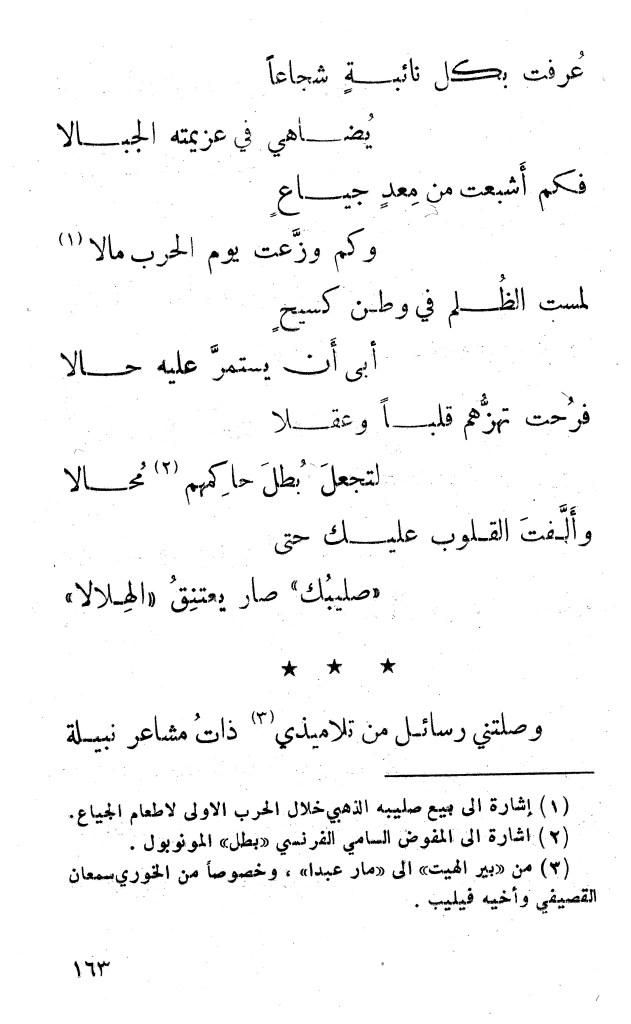 عُرفت بكل نائبةٍ شجاعاً
يُضاهي في عزيمته الجبالا
فكم أَشبعت من مِعدٍ جياعٍ
وكم وزَّعت يوم الحرب مالا (١)
لمست الظُلم في وطن كسيحٍ
أبى أَن يستمرَّ عليه حالا
فرُحت تهزُّهم قلباً وعقلا
لتجعلَ بُطلَ حاكمهم (٢) مُحالا
وأَلَّفتَ القلوب عليك حتى
«صليبُك» صار يعتنِقُ «الهِلالا»
★ ★ ★
وصلتني رسائل من تلاميذي (٣) ذاتُ مشاعر نبيلة
(١) إشارة الى بيع صليبه الذهبي خلال الحرب الاولى لاطعام الجياع.
(٢) اشارة الى المفوض السامي الفرنسي «بطل» المونوبول .
(٣) من «بير الهيت» الى «مار عبدا» ، وخصوصاً من الخوري سمعان
القصيفي وأخيه فيليب .
١٦٣